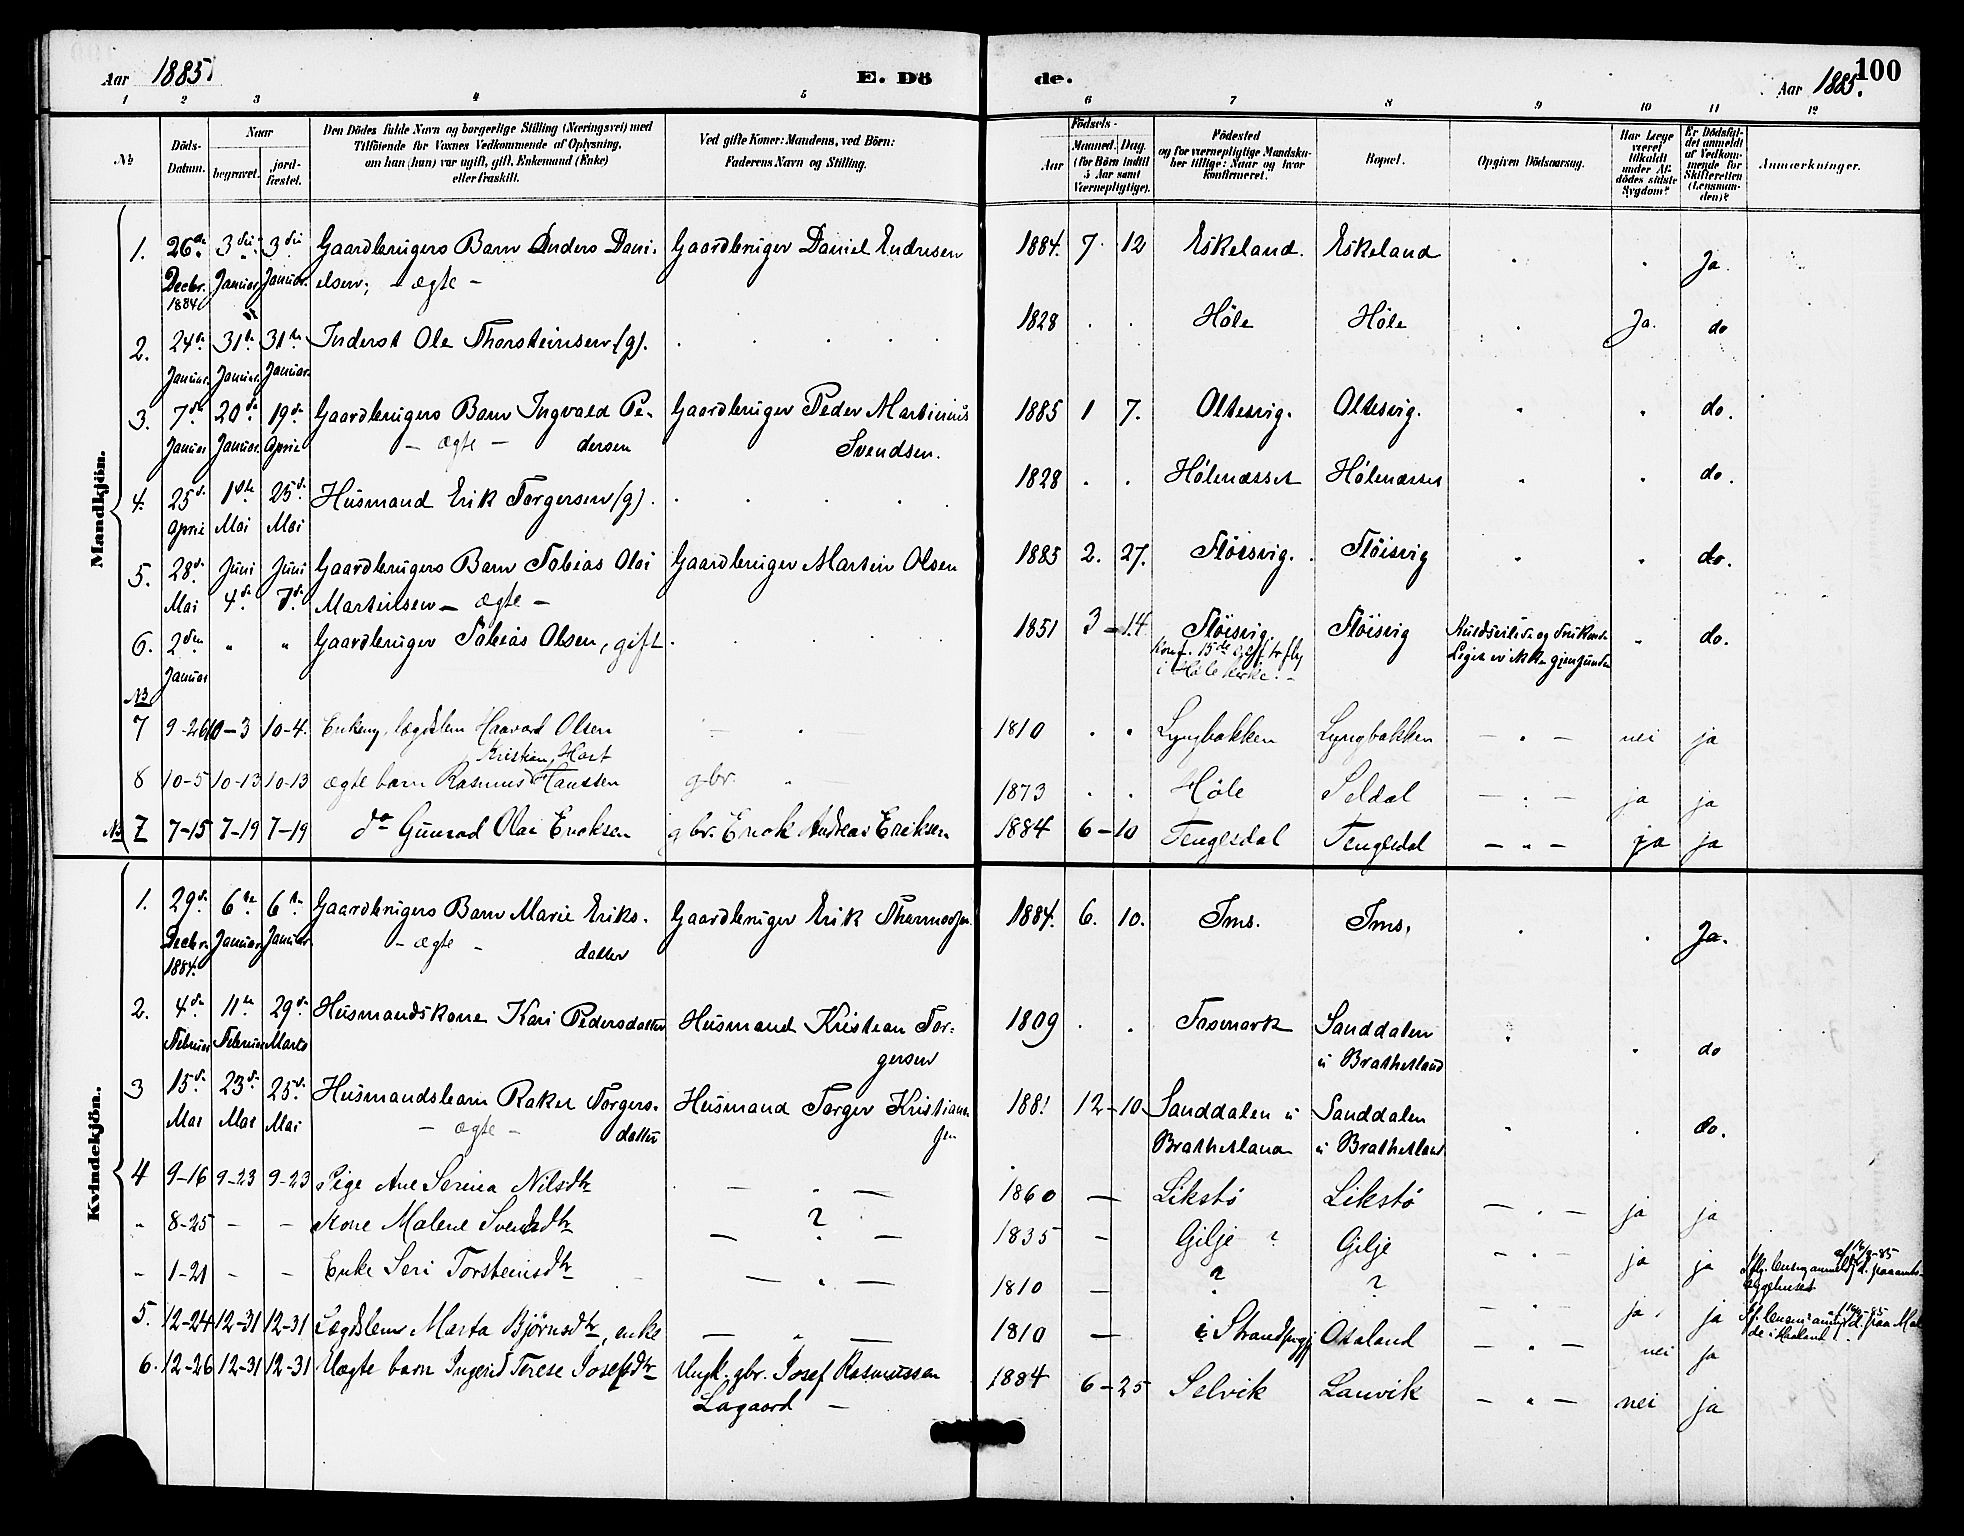 Aar 1885.
E. Dö
de.
Aar 1885.
100
1 2 3 4 5 6 7 8 9 10 11 12
No
Döds-Datum.
Naar
begravet.
jord-fæstet.
Den Dödes fulde Navn og borgerlige Stilling (Næringsvei) med
Tilföiende for Voxnes Vedkommende af Oplysning,
om han (hun) var ugift, gift, Enkemand (Enke)
eller fraskilt.
Ved gifte Koner: Mandens, ved Börn:
Faderens Navn og Stilling.
Födsels-
Aar
Maaned. Dag.
(for Börn indtil
5 Aar samt
Værnepligtige).
Födested
og for værnepligtige Mandskaber tillige: Naar og hvor
konfirmeret.
Bopæl.
Opgiven Dödsaarsag.
Har Læge
været
tilkaldt
under Afdödes sidste
Sygdom?
Er Dödsfaldet anmeldt
af Vedkommende for
Skifteretten
(Lensmanden)?
Anmærkninger.
Mandkjön.
1. 26de Decbr. 1884 3die Januar 3die Januar Gaardbrugers Barn Anders Dani- Gaardbruger Daniel Endresen 1884. 7. 12 Eskeland. Eskeland Ja.
elsen; - ægte -
2. 24de Januar 31te Januar 31te Januar Inderst Ole Thorsteinsen (g). 1828 Høle Høle Ja. do
3. 7de Januar 20de Januar 19de April Gaardbrugers Barn Ingvald Pe- Gaardbruger Peder Martinius 1885 1 7. Oltesvig. Oltesvig. do.
- ægte - dersen Svendsen.
4. 25de April 1ste Mai 25de Mai Husmand Erik Torgersen (g). 1828 Hølenæsset Hølenæsset do.
5. 28de Mai Juni 4de Juni 7de Gaardbrugers Barn Tobias Olai Gaardbruger Martin Olsen 1885 2. 27. Fløisvig. Fløisvig do.
Martinsen - ægte -
6. 2den Januar " " Gaardbruger Tobias Olsen, gift 1851 3 - 14 Fløisvig. Fløisvig do.
Konf. 15de
i Høle kirke. -
Liget er ikke gjenfunden
NB
7 9-26 10-3 10-4. Enkem, lægdslem Haavard Olsen 1810 Lyngbakken Lyngbakken - " - nei ja
Kristian Hart
8 10-5 10-13 10-13 ægte barn Rasmus Hanssen gbr. " 1873 Høle Seldal - " - ja ja
NB 7 7-15 7-19 7-19 do Gunvad Olai Ericksen gbr. Erick Andreas Eriksen 1884 6-10 Tengesdal Tengesdal - " - ja ja
Kvindekjön.
1. 29de Decbr. 1884. 6te Januar 6te Januar Gaardbrugers Barn Marie Eriks- Gaardbruger Erik 1884. 6. 10. Ims. Ims. Ja.
- ægte - datter
2. 4de Februar 11te Februar 29de Marts Husmandskone Kari Pedersdatter Husmand Kristian Tor- 1809 Fosmark Sanddalen do
gersen u Brattetland
3 15de Mai 23de Mai 25de Mai Husmandsbarn Rakel Torgers- Husmand Torger Kristian 1881 12-10 Sanddalen u Sanddalen do.
- ægte - datter sen Brattetland u Brattetland
4 9-16 9-23 9-23 Pige Ane Serina Nilsdtr - " - 1860 - Likstø Likstø - " - ja ja
" 8-25 - - Kone Malene Svendsdtr - ? - 1835 - Gilje ? Gilje - " - ja ja
" 1-21 - - Enke Seri Torsteinsdtr - " - 1810 - ? ? - " - ja ja
5. 12-24 12-31 12-31 Lægdslem Marta Bjørnsdtr, enke - " - 1810 - i Strand Osaland - " - nei ja
6. 12-26 12-31 12-31 Uægte barn Ingerid Terese Josefsdtr Ungk. gbr. Josef Rasmussen 1884 6-25 Selvik Lauvik - " - nei ja
Lagaard -